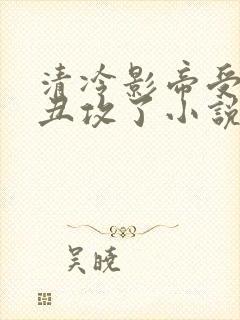 清冷影帝受
丑攻了小説
吴曉